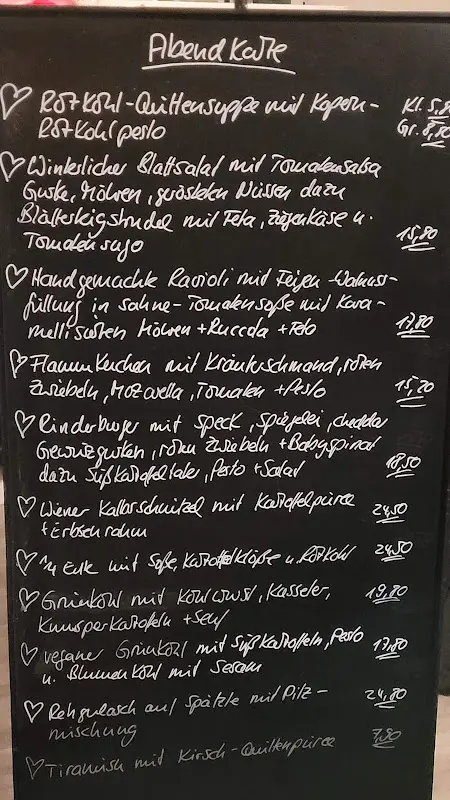 Abendkarte
Rotkohl-Quittensuppe mit Kapern-
Rotkohlpesto
Kl. 5,80
Gr. 8,80
Winterlicher Blattsalat mit Tomatensalsa
Gurke, Möhren, gerösteten Nüssen dazu
Blätterteigstrudel mit Feta, Ziegenkäse u.
Tomatensugo
15,80
Handgemachte Ravioli mit Feigen-Walnuss-
füllung in Sahne-Tomatensoße mit Kara-
mellisierten Möhren + Ruccola + Feto
17,80
Flammkuchen mit Kräuterschmand, roten
Zwiebeln, Mozarella, Tomaten + Pesto
15,20
Rinderburger mit Speck, Spiegelei, cheddar
Gewürzgurken, roten Zwiebeln + Babyspinat
dazu Süßkartoffeltaler, Pesto + Salat
18,50
Wiener Kalbsschnitzel mit Kartoffelpüree
+ Erbsenrahm
24,50
1/4 Ente mit Soße, Kartoffelklöße u. Rotkohl
24,50
Grünkohl mit Kohlwurst, Kasseler,
Knusperkartoffeln + Senf
19,80
veganer Grünkohl mit Süßkartoffeln, Pesto
u. Blumenkohl mit Sesam
17,80
Rehgulasch auf Spätzle mit Pilz-
mischung
24,80
Tiramisu mit Kirsch-Quittenpüree
7,90